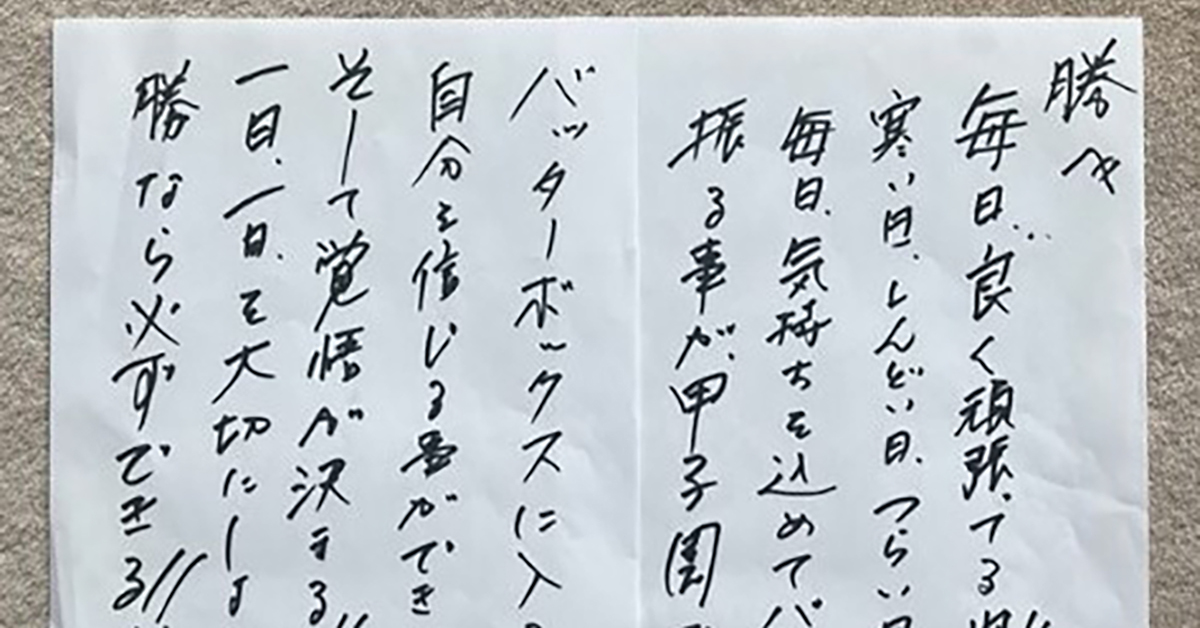 勝へ
毎日..良く頑張ってる
寒い日、しんどい日、つらい日
毎日、気持ちを込めてバ
振る事が、甲子園
バッターボックスに入
自分を信じる事ができ
そして覚悟が決まる!!
一日、一日、を大切にしよ
勝なら必ずできる!!